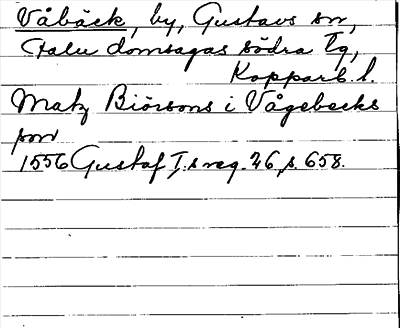 Våbäck, by, Gustavs sn,
Falu domsagas södra tg,
Kopparb. l.
Matz Biörsons i Vågebecks
son
1556 Gustaf I:s reg. 26, s. 658.